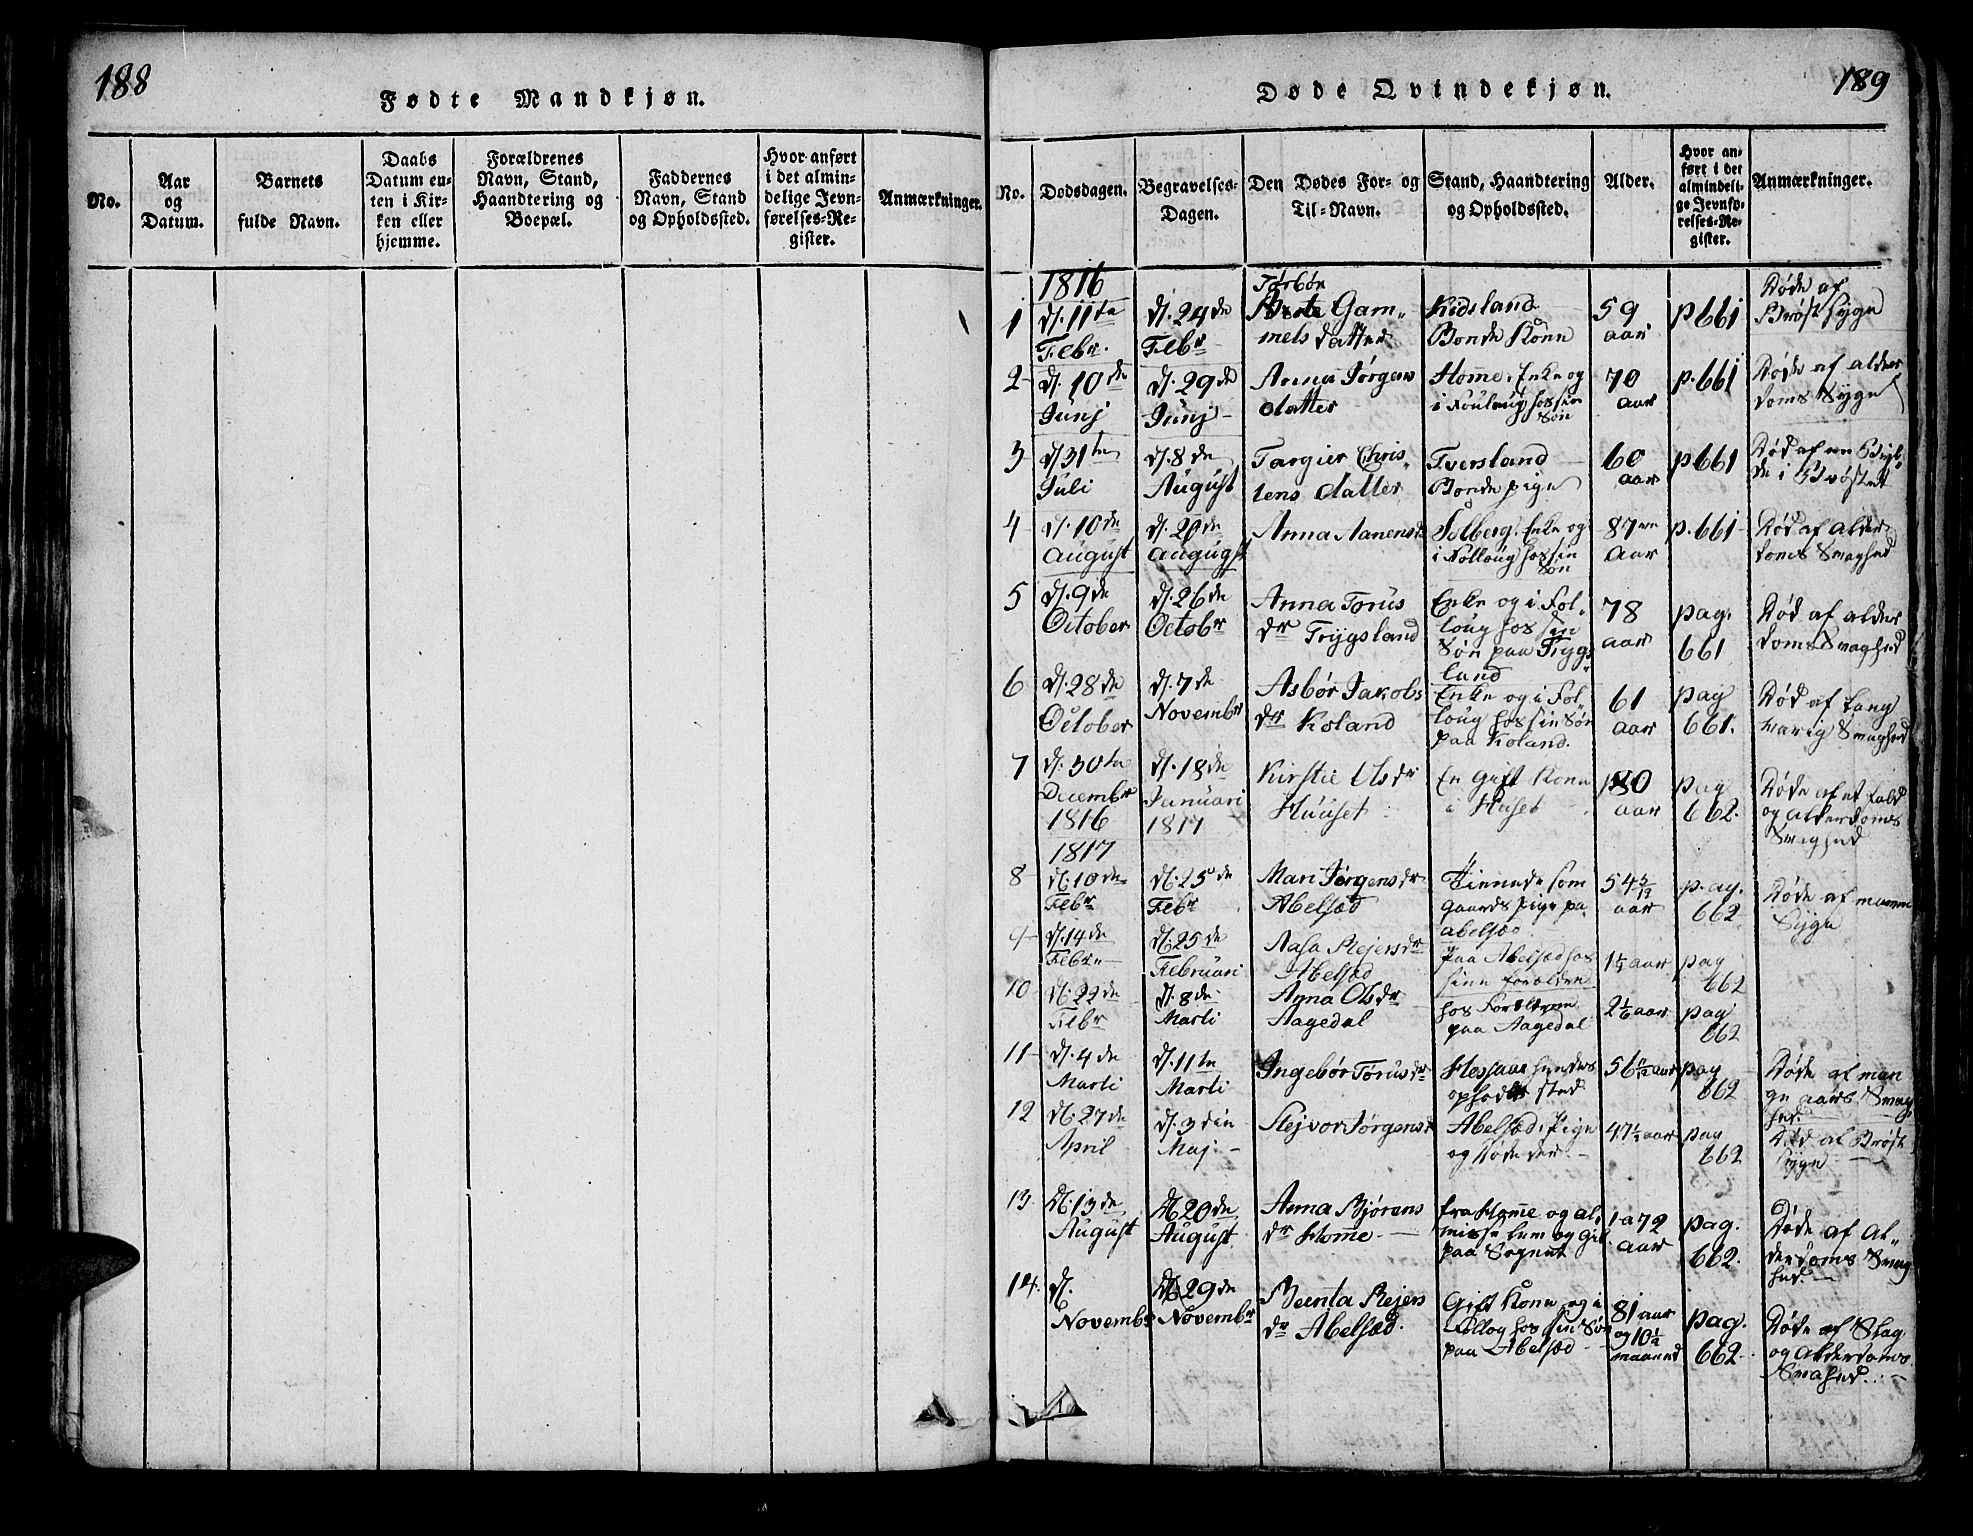 188
Fødte Mandkjøn.
No.
Aar
og
Datum.
Barnets
fulde Navn.
Daabs
Datum en-
ten i Kir-
ken eller
hjemme.
Forældrenes
Navn, Stand,
Haandtering og
Boepæl.
Faddernes
Navn, Stand
og Opholdssted.
Hvor anført
i det almin-
delige Jevn-
førelses-Re-
gister.
Anmærkninger.
Døde Qvindekjøn.
189
No.
Dødsdagen.
Begravelses-
Dagen.
Den Dødes For- og
Til-Navn.
Stand, Haandtering
og Opholdssted.
Alder.
Hvor an-
ført i det
almindeli-
ge Jevnfø-
relses-Re-
gister.
Anmærkninger.
1816
1
d. 11te
Febr.
d. 24de
Febr
Torbôr
Gam-
mels datter
Kidsland
Bonde Kone
59
aar
p 661
Døde af
Brôst Syge
2
d. 10de
Junj
d. 29de
Junj
Anna Jørgens
datter
Home. Enke og
i hos sin
Søn
70
aar
p. 661
Døde af alder
doms Syge
3
d 31te
Juli
d. 8de
August
Targier Chris
tens datter
Tversland
Bonde pige
60
aar
p 661
Død af en Byl
de i Brøstet
4
d. 10de
August
d. 20de
August
Anna Aanensdr
Solberg. Enke og
i Folloug hos sin
Søn
87
aar
p. 661
Død af alder
doms Svaghed
5
d. 9de
October
d. 26de
Octobr
Anna Torus
dr Trygsland
Enke og i Fol-
loug hos sin
Søn paa Trygs
land
78
aar
pag.
661
Død af alder
doms Svaghed
6
d. 28de
October
d. 7de
Novembr
Asbôr Jakobs
dr Koland
Enke og i Fol-
loug hos sin Søn
paa Koland.
61
aar
pag
661.
Død af lang
varig Svaghed
7
d. 30te
Decembr
1816
d. 18de
Januari
1817
Kirstie Olsdr
Huuset
En Gift Kone
i Huset
80
aar
pag
662.
Døde af et fald
og alderdoms
Svaghed
1817
8
d. 10de
Febr
d. 25de
Febr
Mari Jørgensdr
Abelsæd
Tienende som
gaards pige pa
abelsæd
54
aar
pag.
662
Døde af
Syge
9
d. 14de
Febr
d. 25de
Februari
Aasa Rejersdr
Abelsæd
paa Abelsæd hos
sine forældre
aar
pag
662
10
d. 22de
Febr
d. 8de
Marti
Anna Olsdr
Aagedal
hos Forældrene
paa Aagedal
2 1/6 aar
pag
662
11
d. 4de
Marti
d. 11te
Marti
Ingebôr Torusdr
Hessaae hendes
opholds sted
56 aar
pag
662
Døde af man
ge aars Svag
hed
12
d. 27de
April
d. 3die
Maj
Slejvor Jørgensdr
Abelsæd. Pige
og døde der
47 1/2 aar
pag
662
Død af Brôst
syge
13
d. 13de
August
d. 20de
August
Anna Bjørens
dr Home
fra Home og al-
misse lem og gik
paa Sognet
72
aar
pag.
662.
Døde af Al-
derdoms Svag
hed
14.
d.
Novembr
d. 29de
Novembr
Beenta Rejers
dr Abelsæd.
Gift Kone og i
Follog hos sin Søn
paa Abelsæd
81 aar
og 10 1/2
maaned
pag.
662
Døde af Slag
og alderdoms
Svahed.